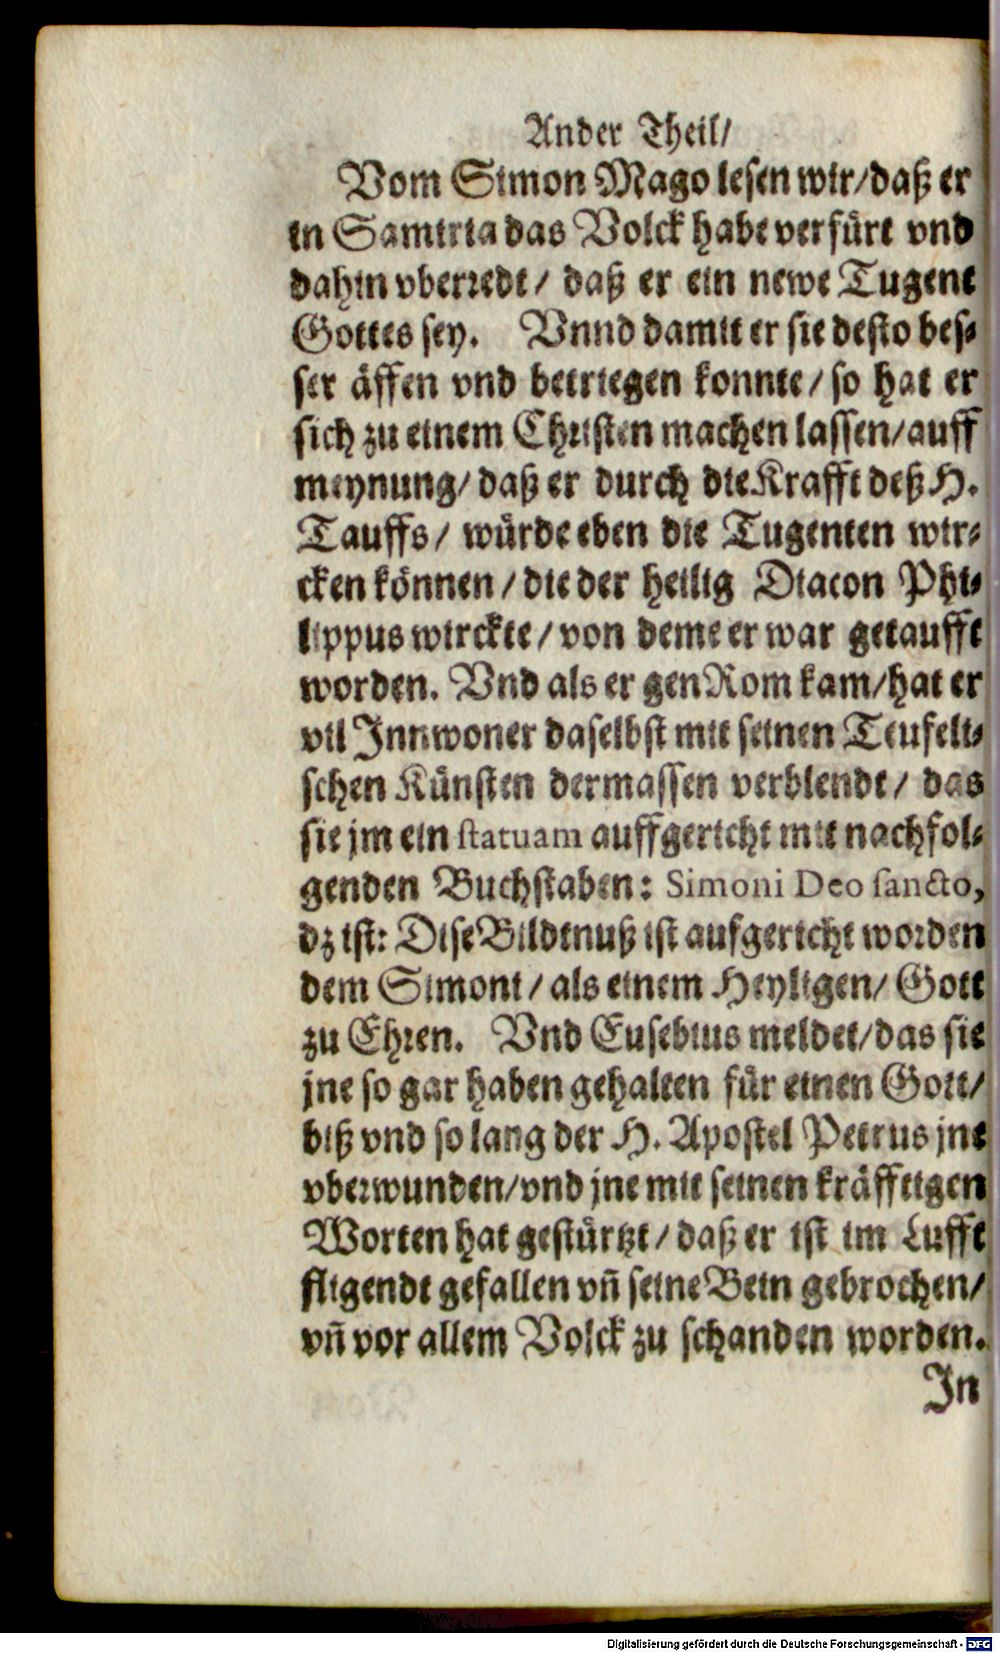 Ander Theil/
Vom Simon Mago lesen wir/daß er
in Samiria das Volck habe verfürt vnd
dahin vberredt/ daß er ein newe Tugent
Gottes sey. Vnnd damit er sie desto bes-
ser äffen vnd betriegen konnte/so hat er
sich zu einem Christen machen lassen/auff
meynung/daß er durch die Krafft deß H.
Tauffs/ würde eben die Tugenten wir-
cken können/die der heilig Diacon Phi-
lippus wirckte/von deme er war getaufft
worden. Vnd als er gen Rom kam/hat er
vil Innwoner daselbst mit seinen Teufeli-
schen Künsten dermassen verblendt/ das
sie jm ein statuam auffgericht mit nachfol-
genden Buchstaben: Simoni Deo sancto,
dz ist: Dise Bildtnuß ist aufgericht worden
dem Simoni/als einem Heyligen/ Gott
zu Ehren. Vnd Eusebius meldet/das sie
jne so gar haben gehalten für einen Gott/
biß vnd so lang der H. Apostel Petrus jne
vberwunden/vnd jne mit seinen kräfftigen
Worten hat gestürtzt/daß er ist im Lufft
fligendt gefallen vñ seine Bein gebrochen/
vñ vor allem Volck zu schanden worden.
In
Digitalisierung gefördert durch die Deutsche Forschungsgemeinschaft - DFG